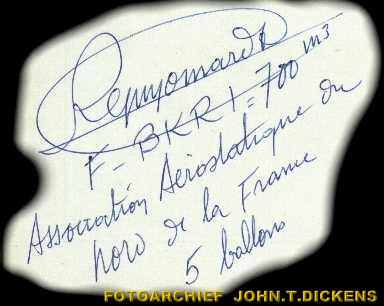 F-BKRI=700 m3
Association Aérostatique du
Nord de la France
5 ballons
FOTOARCHIEF JOHN.T.DICKENS